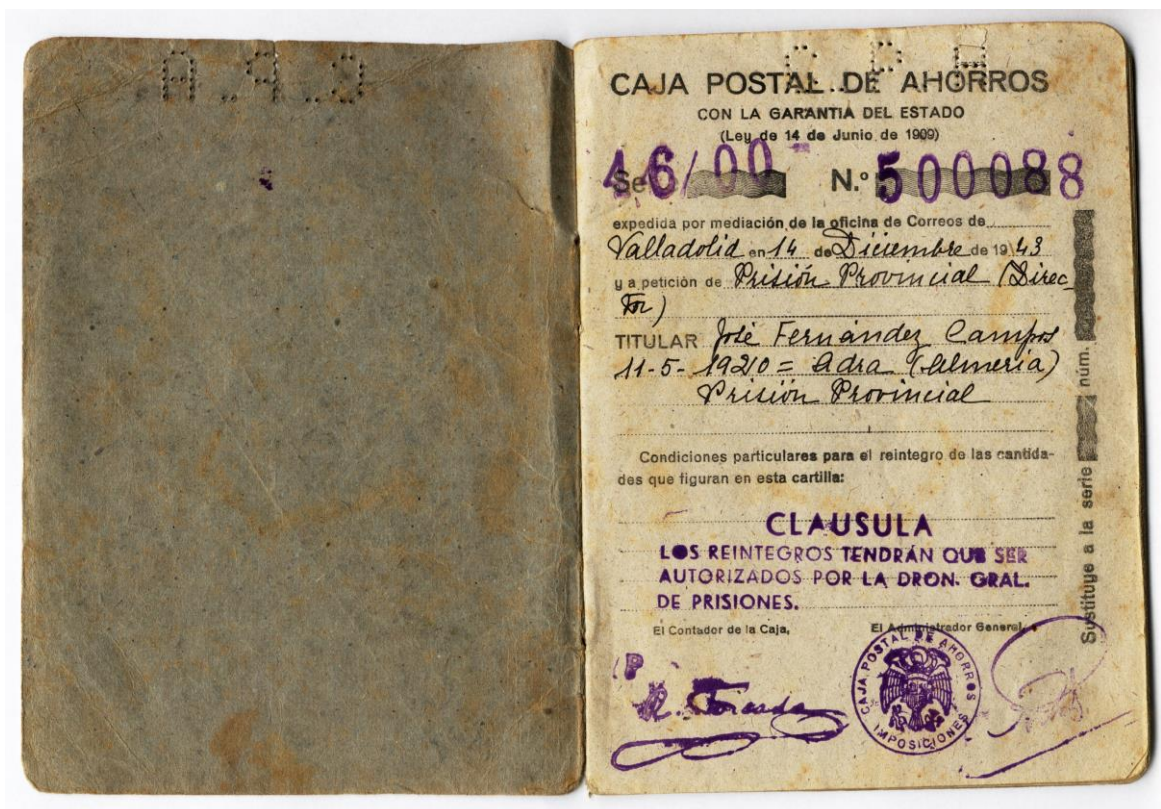 C.P.A.
C P A
CAJA POSTAL DE AHORROS
CON LA GARANTIA DEL ESTADO
(Ley de 14 de Junio de 1909)
Se 46/00 N.º 500088
expedida por mediación de la oficina de Correos de
Valladolid en 14 de Diciembre de 1943
y a petición de Prisión Provincial (Direc-
tor)
TITULAR José Fernández Campos
11-5-1920 = Adra (Almería)
Prisión Provincial
Condiciones particulares para el reintegro de las cantida-
des que figuran en esta cartilla:
CLAUSULA
LOS REINTEGROS TENDRÁN QUE SER
AUTORIZADOS POR LA DRON. GRAL.
DE PRISIONES.
El Contador de la Caja, El Administrador General,
P
CAJA POSTAL DE AHORROS
IMPOSICIONES
Sustituye a la serie núm.